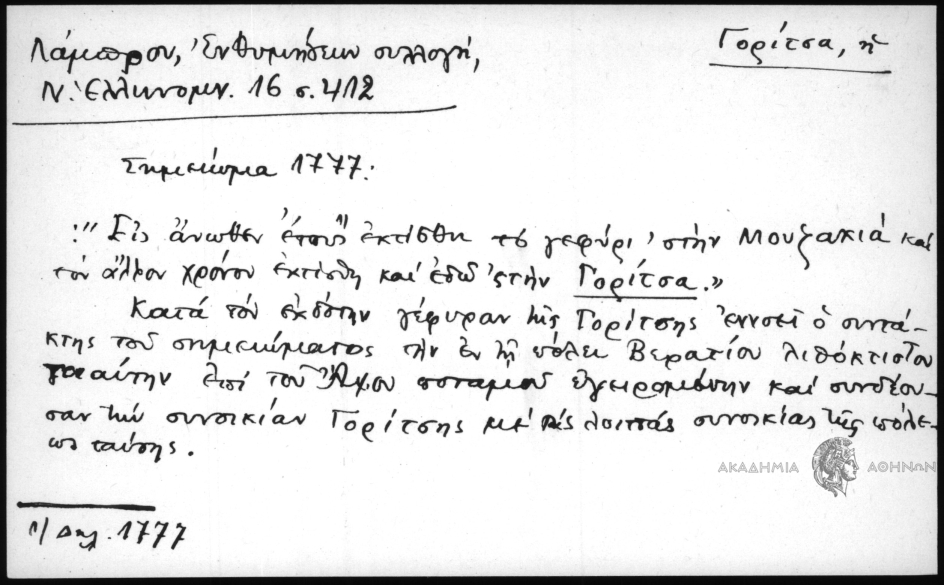 Λάμπρου, Ἐνθυμήσεων συλλογή,
Γορίτσα, ἡ
Ν. Ἑλληνομν. 16 σ. 412
Σημείωμα 1777:
"Εἰς ἄνωθεν ἔτους¹⁾ ἐκτίσθη τὸ γεφύρι 'στὴν Μουζακιά καὶ
τὸν ἄλλον χρόνον ἐκτίσθη καὶ ἐδῶ 'ς τὴν Γορίτσα."
Κατά τὸν ἐκδότην γέφυραν τῆς Γορίτσης ἐννοεῖ ὁ συντά-
κτης τοῦ σημειώματος τὴν ἐν τῇ πόλει Βερατίου λιθόκτιστον
ταύτην ἐπί τοῦ Ἄψου ποταμοῦ ἐγειρομένην καὶ συνδέου-
σαν τὴν συνοικίαν Γορίτσης μὲ τὰς λοιπάς συνοικίας τῆς πόλε-
ως ταύτης.
ΑΚΑΔΗΜΙΑ ΑΘΗΝΩΝ
1/ Δηλ. 1777